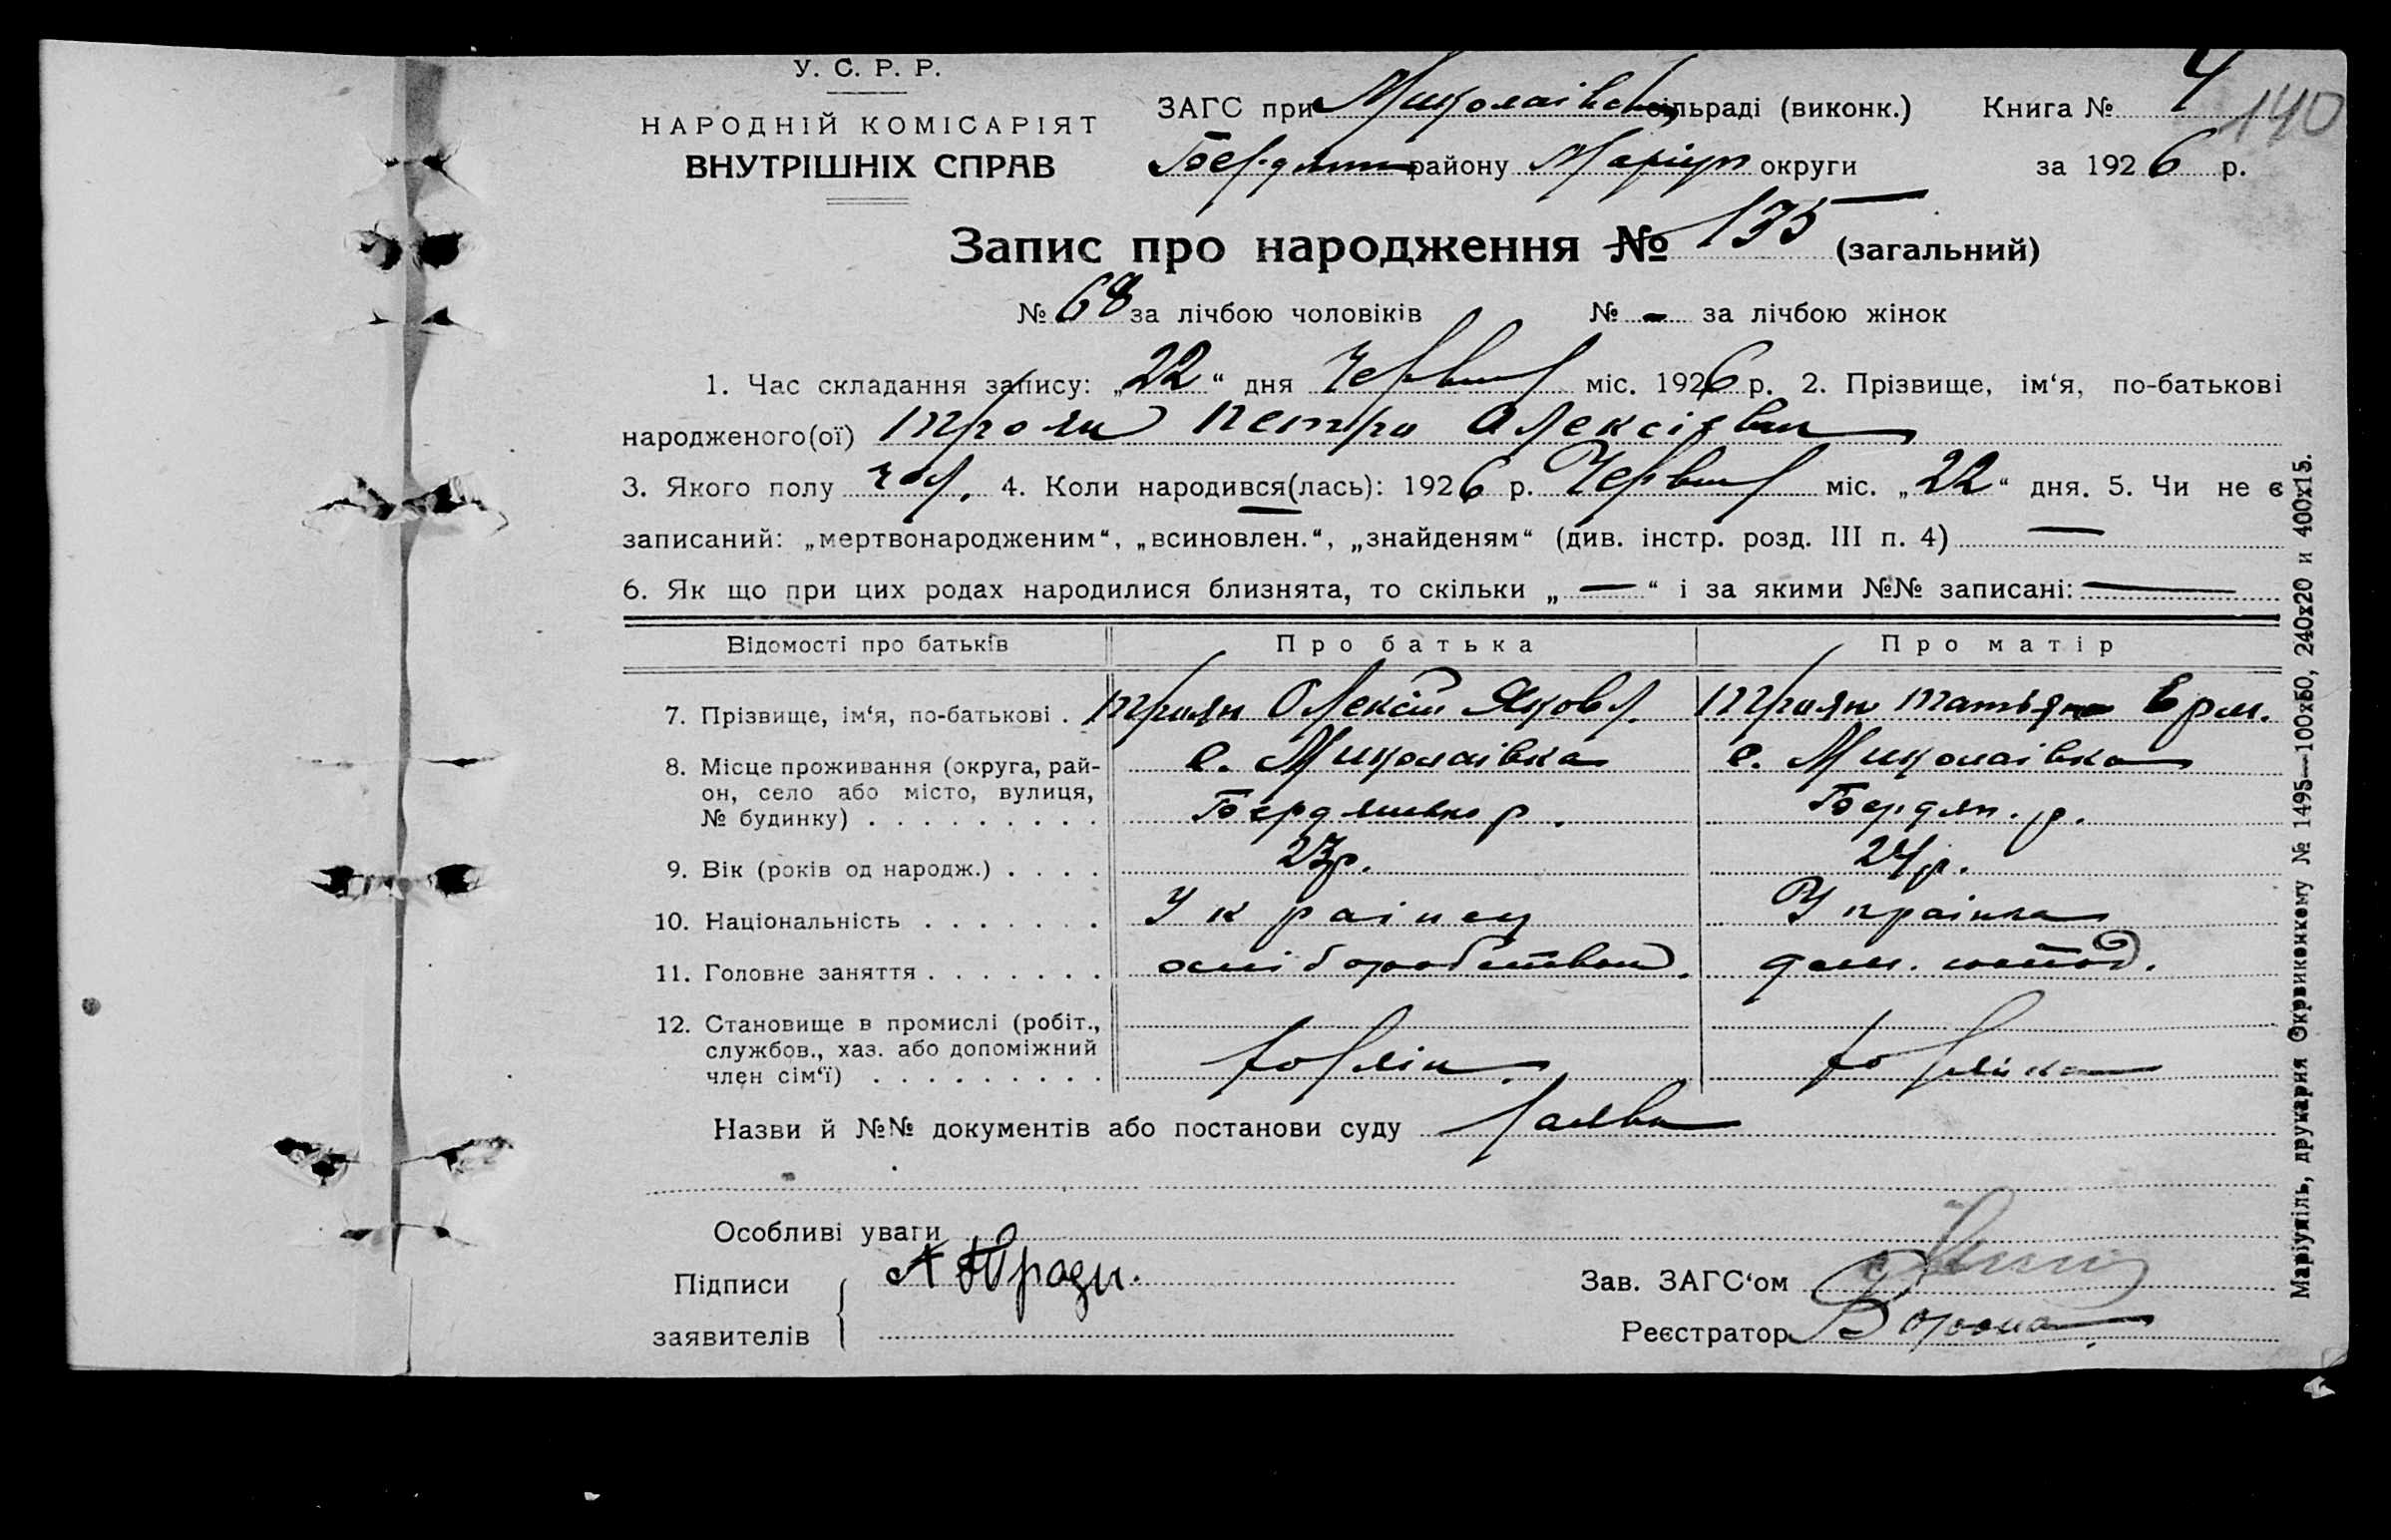 У. С. Р. Р.
НАРОДНІЙ КОМІСАРІЯТ
ВНУТРІШНІХ СПРАВ
ЗАГС при Миколаівск сільраді (виконк.) Книга № 4
140
Бердян району Маріуп округи за 1926 р.
Запис про народження № 135 (загальний)
№ 68 за лічбою чоловіків № - за лічбою жінок
1. Час складання запису: „22“ дня Червня міс. 1926 р. 2. Прізвище, ім‘я, по-батькові
народженого(ої) Троян Петро Олексієвич
3. Якого полу чол. 4. Коли народився(лась): 1926 р. Червня міс. „22“ дня. 5. Чи не є
записаний: „мертвонародженим“, „всиновлен.“, „знайденям“ (див. інстр. розд. III п. 4) —
6. Як що при цих родах народилися близнята, то скільки „—“ і за якими №№ записані: —
Відомості про батьків Про батька Про матір
7. Прізвище, ім‘я, по-батькові . Троян Олексій Яковл. Троян Татьяна Ерм.
8. Місце проживання (округа, рай- с. Миколаівка с. Миколаівка
он, село або місто, вулиця,
№ будинку) . . . . . . . . . Бердянськ р. Бердян. р.
9. Вік (років од народж.) . . . . 23р. 24р.
10. Національність . . . . . . . Украінец Украінка
11. Головне заняття . . . . . . . дом. господ.
12. Становище в промислі (робіт.,
службов., хаз. або допоміжний
член сім‘ї) . . . . . . . . .
Назви й №№ документів або постанови суду Заява
Особливі уваги
Підписи А
заявителів
Зав. ЗАГС‘ом
Реєстратор Ворона
Маріупіль, друкарня Окрвиконкому № 1495—100х50, 240х20 и 400х15.